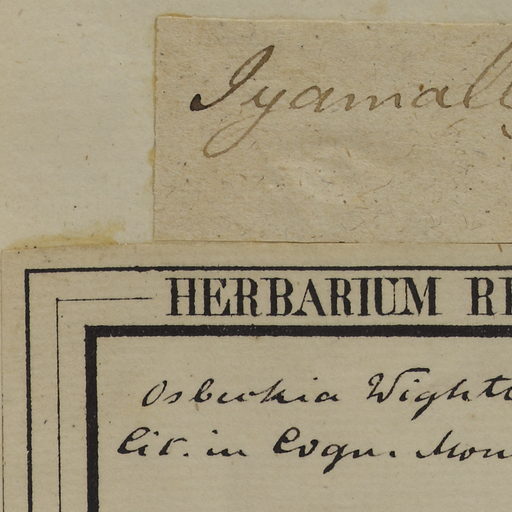 Iyamally
HERBARIUM RE
Osbeckia Wighti
Cit. in Cogn. Mon